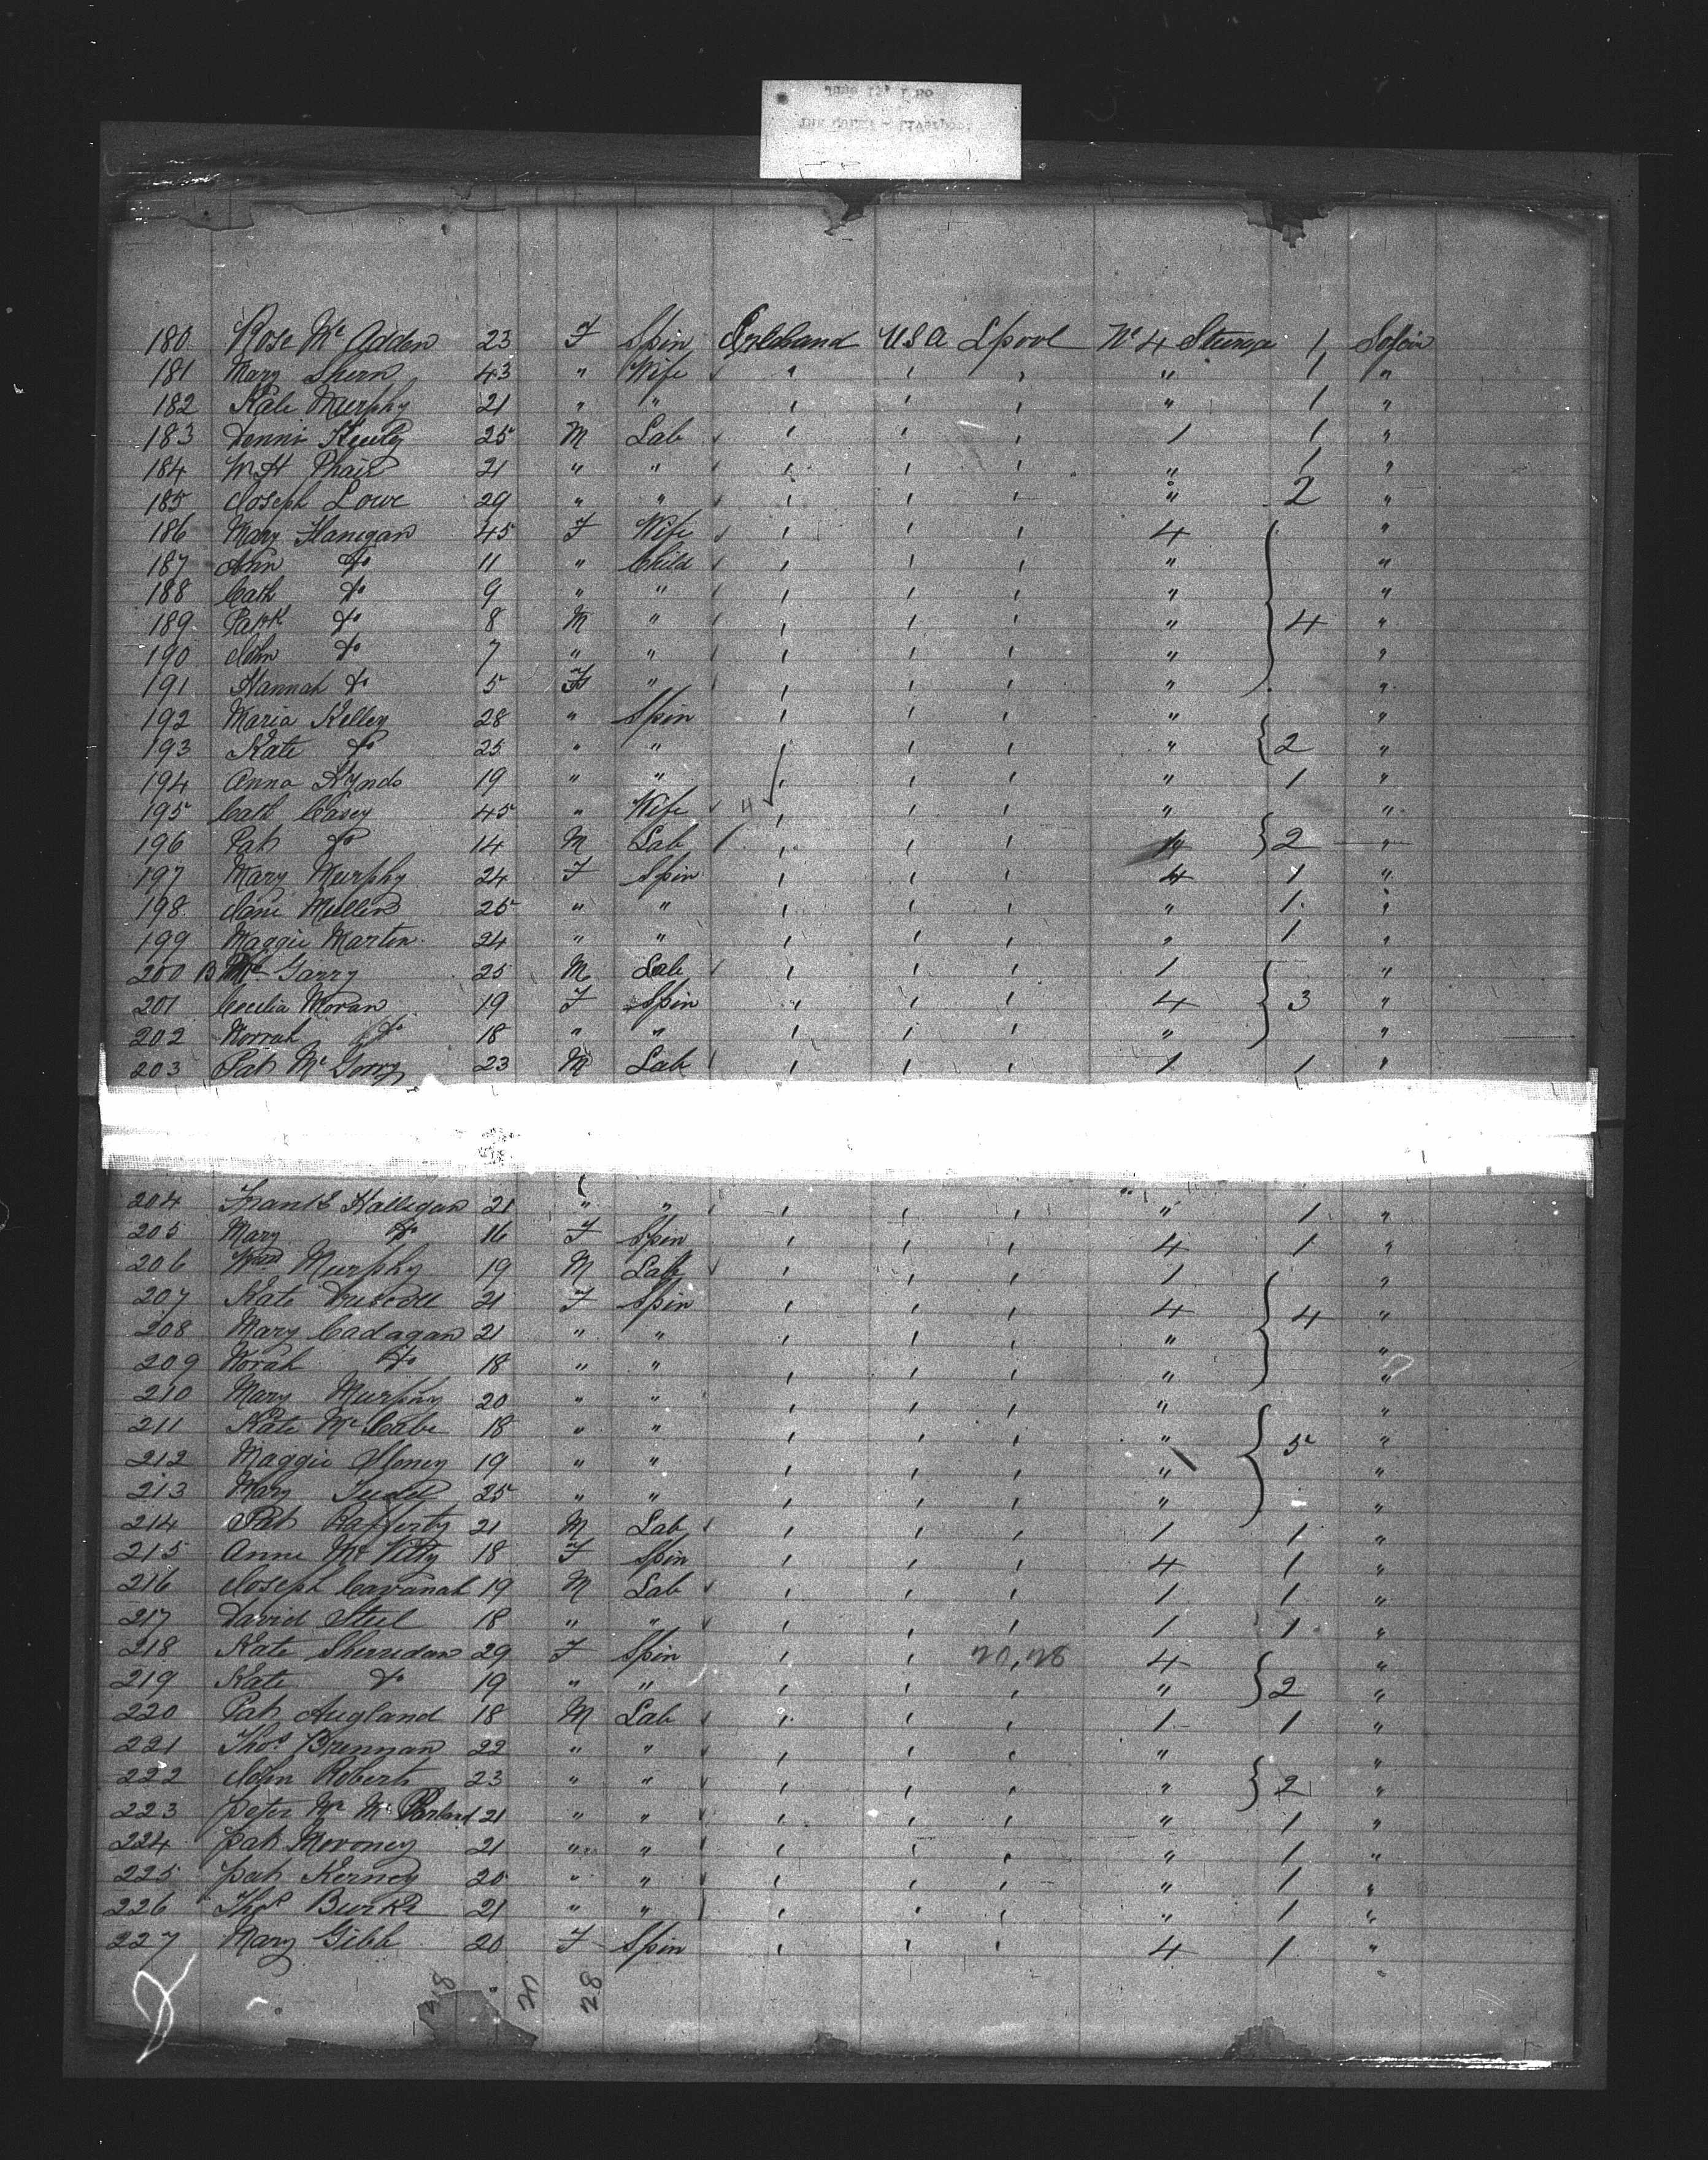 180 Rose Mc Adden 23 F Spin Ireland U S A Lpool No 4 Steerage 1 Sojoin
181 Mary Shern 43 " Wife " 1 "
182 Kate Murphy 21 " " " 1 "
183 Dennis 25 M Lab 1 1 "
184 Wm H Phair 21 " " " 1 "
185 Joseph Lowe 29 " " " 2 "
186 Mary Flanigan 45 F Wife 4 "
187 Ann Do 11 " Child " "
188 Cath Do 9 " " " "
189 Patk Do 8 M " " 4 "
190 John Do 7 " " " "
191 Hannah Do 5 F " " "
192 Maria Kelley 28 " Spin " "
193 Kate Do 25 " " " 2 "
194 Anna Hynds 19 " " " 1 "
195 Cath Casey 45 " Wife 4 " "
196 Pat Do 14 M Lab 2 "
197 Mary Murphy 24 F Spin 4 1 "
198 Jane Mullin 25 " " " 1 "
199 Maggie Martin 24 " " " 1 "
200 B Mc Garry 25 M Lab 1 "
201 Cecilia Moran 19 F Spin 4 3 "
202 Norrah Do 18 " " " "
203 Pat Mc Gorry 23 M Lab 1 1 "
204 Frank Halligan 21 " " " 1 "
205 Mary Do 16 F Spin 4 1 "
206 Wm Murphy 19 M Lab 1 "
207 Kate Driscoll 21 F Spin 4 4 "
208 Mary Cadagan 21 " " " "
209 Norah Do 18 " " " "
210 Mary Murphy 20 " " " "
211 Kate Mc Cabe 18 " " " 5 "
212 Maggie Sloney 19 " " " "
213 Mary 25 " " " "
214 Pat Rafferty 21 M Lab 1 1 "
215 Anne Mc Vitty 18 F Spin 4 1 "
216 Joseph Cavanah 19 M Lab 1 1 "
217 David Steel 18 " " 1 1 "
218 Kate Sherridan 29 F Spin 20,28 4 "
219 Kate Do 19 " " " 2 "
220 Pat Augland 18 M Lab 1 1 "
221 Thos Brennan 22 " " " "
222 John Roberts 23 " " " 2 "
223 Peter Mc Mc Parland 21 " " " 1 "
224 Pat Moroney 21 " " " 1 "
225 Pat Kerney 20 " " " 1 "
226 Thos Burke 21 " " " 1 "
227 Mary Gibb 20 F Spin 4 1 "
28 20 28
2